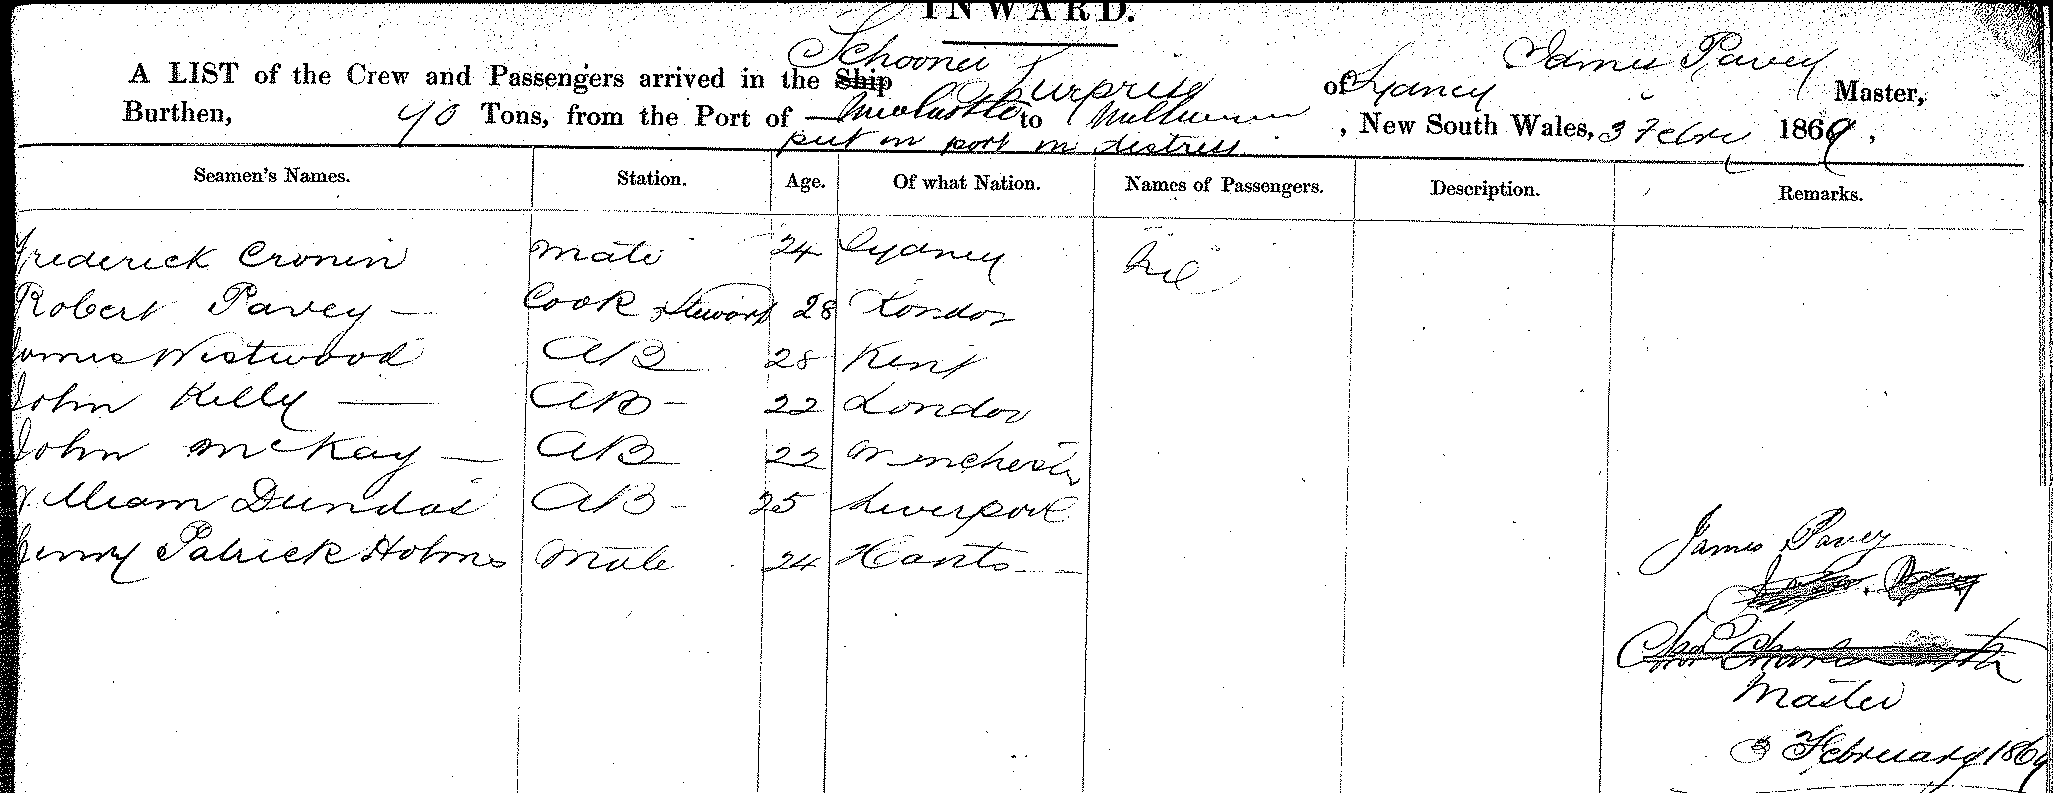 INWARD.
Schooner
James Pavey
A LIST of the Crew and Passengers arrived in the Ship Surprise of Sydney Master,
Burthen, 90 Tons, from the Port of Newcastle to Melbourne, New South Wales, 3 Febry 1869.
put in port in distress
Seamen's Names. Station. Age. Of what Nation. Names of Passengers. Description. Remarks.
Frederick Cronin Mate 24 Sydney Nil
Robert Pavey — Cook & Steward 28 London
James Westwood AB 28 Kent
John Kelly — AB - 22 London
John McKay — AB 22 Winchester
William Dundas AB - 25 Liverpool
Henry Patrick Holmes Male 24 Hants —
James Pavey
Master
3 February 1869